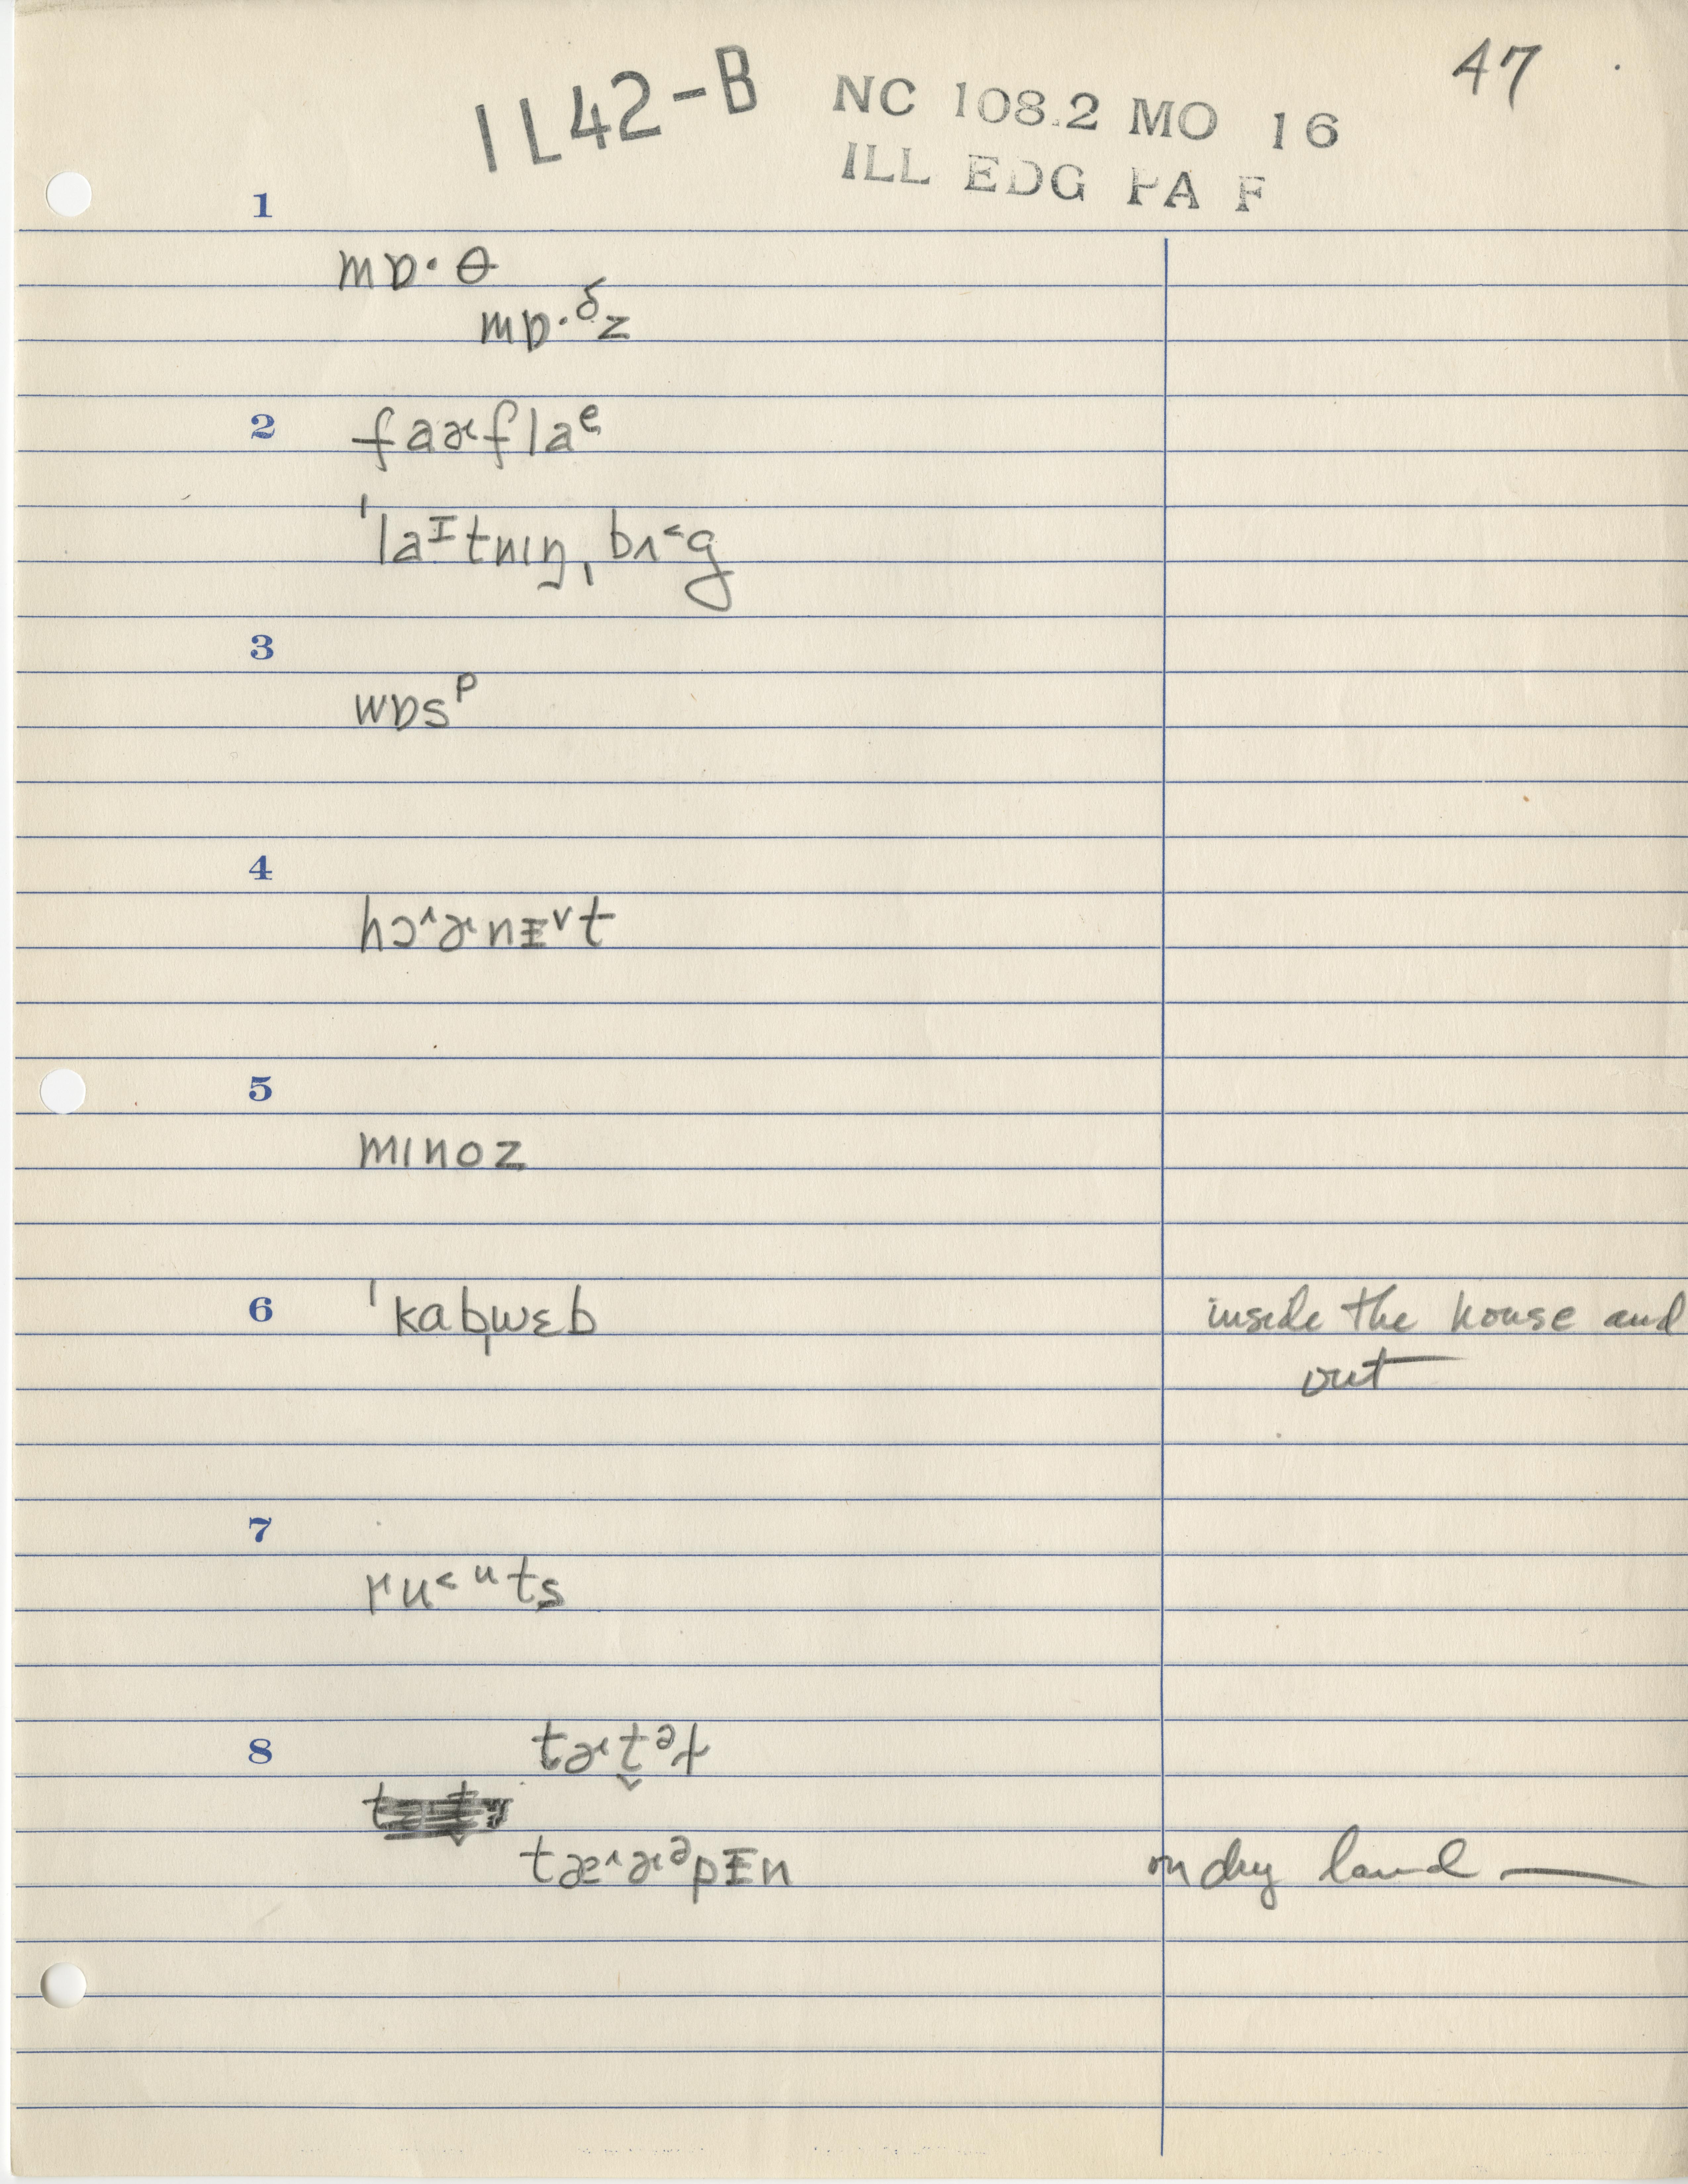 47
IL42-B NC 108.2 MO 16
ILL EDG PA F
1
mɒ·θ
mɒ·ᵟz
2 faɚflaᵉ
ˈlaᶦtnɪŋˌbʌ˂g
3
wɒsᵖ
4
hɔ˄ɚnɪ˅t
5
mɪnoz
6 ˈkab̩wɛb inside the house and
out
7
ru˂ᵘts
8 tɚt̬ᵊɫ
tæ˄ɚᵊpɪn on dry land —